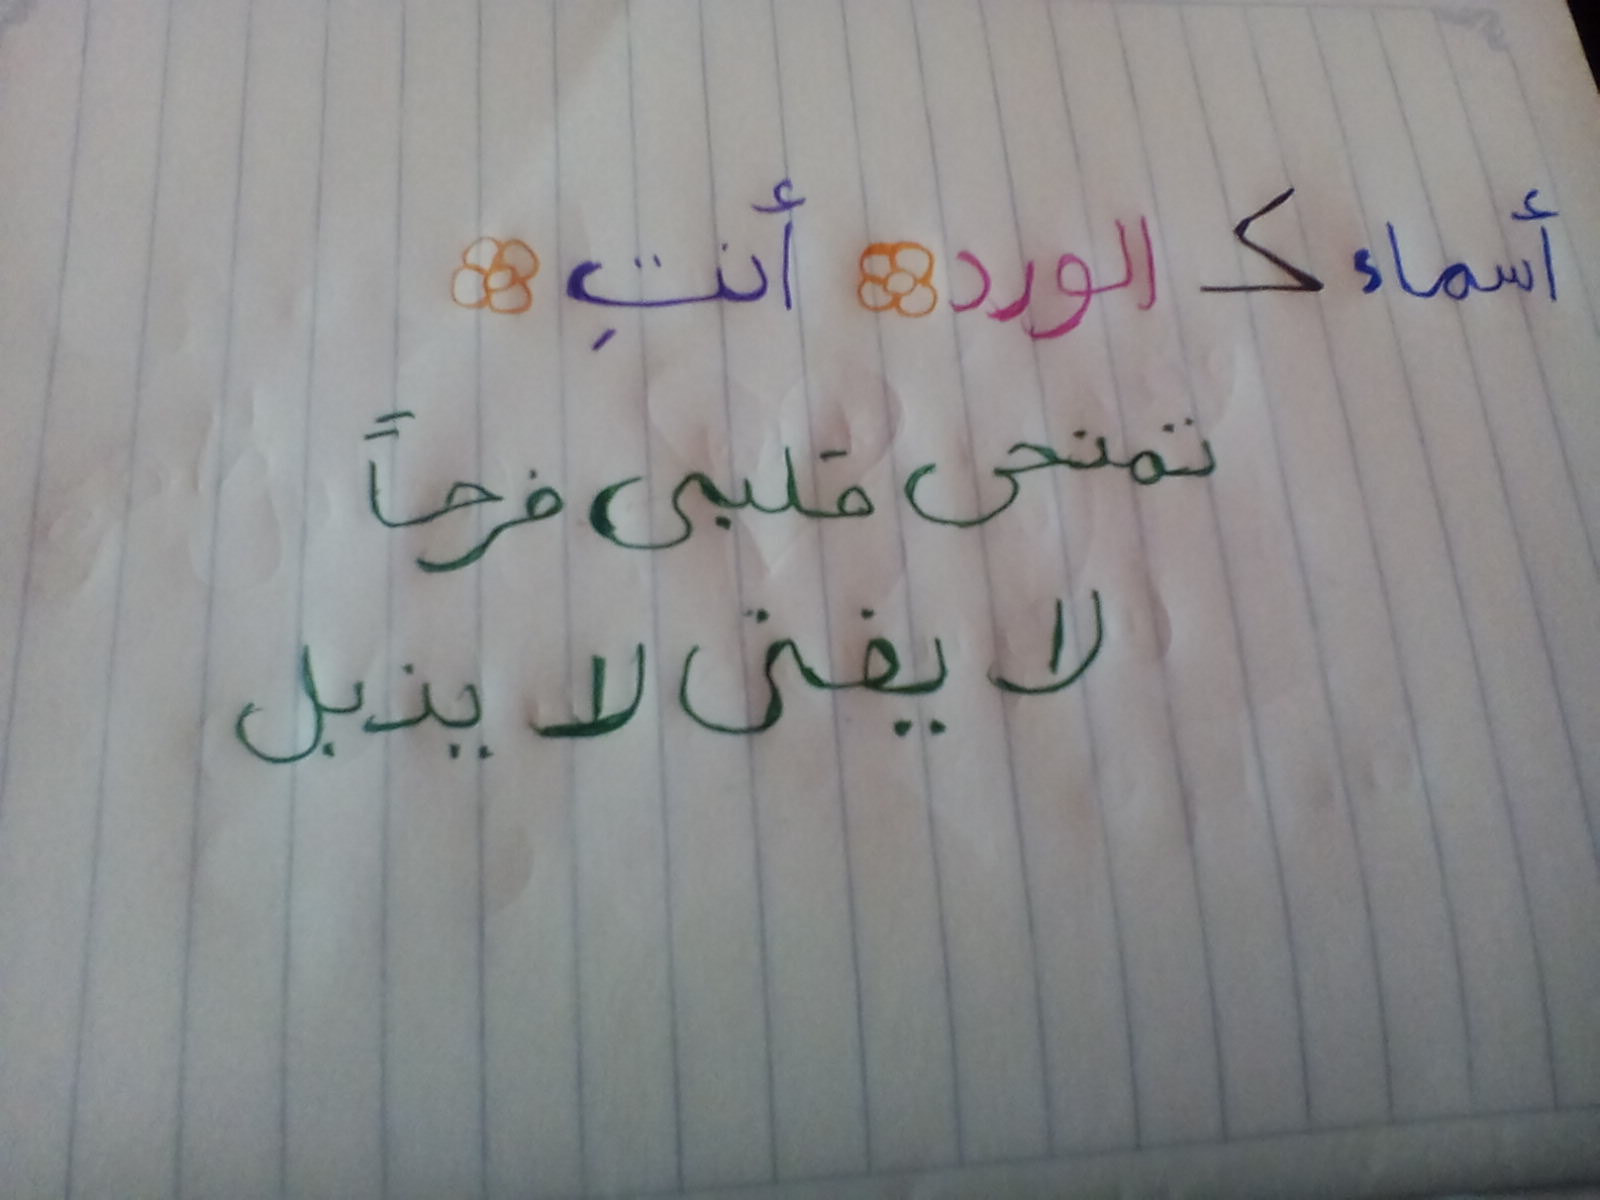 أسماء كـ الورد أنتِ
تمنحى قلبى فرحاً
لا يفنى لا يذبل